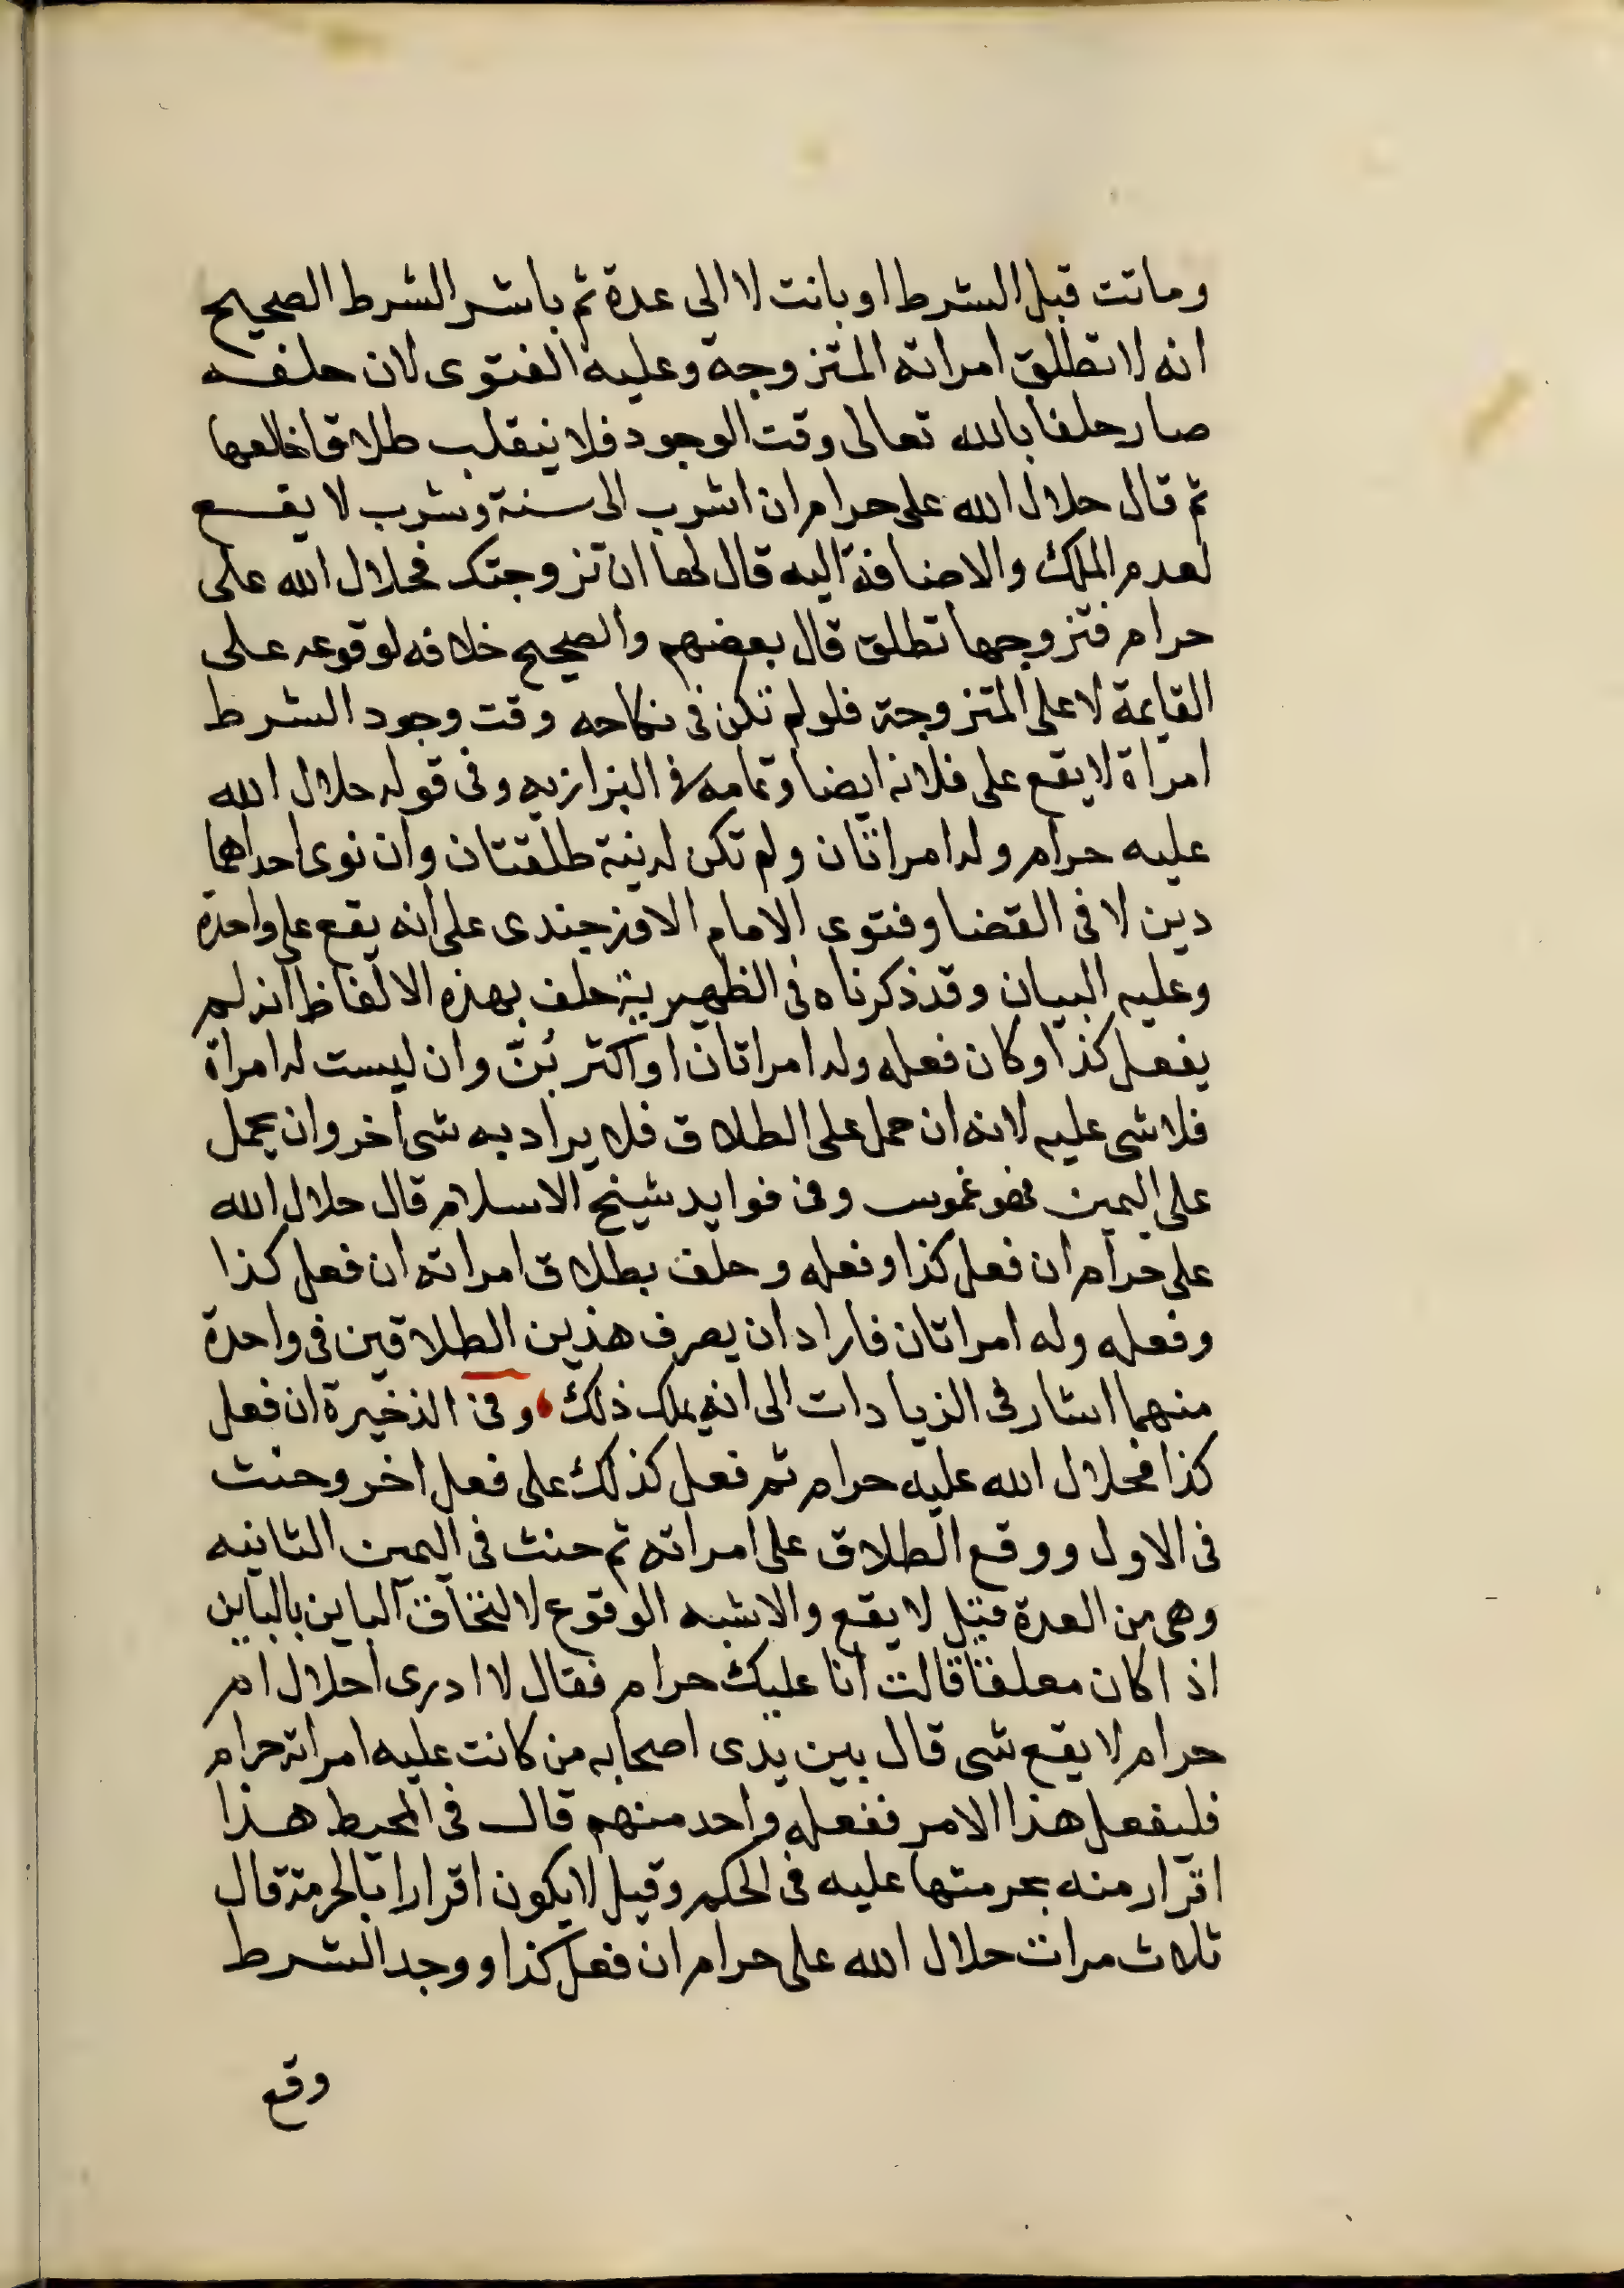 وماتت قبل الشرط او بانت لا الى عدة ثم باشر الشرط الصحيح
انه لا تطلق امراته المتزوجة وعليه الفتوى لان حلفه
صار حلفا بالله تعالى وقت الوجود فلا ينقلب طلاقا خالعها
ثم قال حلال الله على حرام ان اشرب الى سنة وشرب لا يقع
لعدم الملك والاضافة اليه قال لها ان تزوجتك فحلال الله على
حرام فتزوجها تطلق قال بعضهم والصحيح خلافه لوقوعه على
القايمة لا على المتزوجة فلو لم تكن فى نكاحه وقت وجود الشرط
امراة لا يقع على فلانة ايضا وتمامه فى البزازيه وفى قوله حلال الله
عليه حرام وله امراتان ولم تكن له نية طلقتان وان نوى احداهما
دين لا فى القضا وفتوى الامام الاوزجندى على انه يقع على واحدة
وعليه البيان وقد ذكرناه فى الظهيرية حلف بهذه الالفاظ انه لم
يفعل كذا وكان فعله وله امراتان او اكثر بُنّ وان ليست له امراة
فلا شى عليه لانه ان حمل على الطلاق فلا يراد به شى اخر وان يحمل
على اليمين فهو غموس وفى فوايد شيخ الاسلام قال حلال الله
على حرام ان فعل كذا وفعله وحلف بطلاق امراته ان فعل كذا
وفعله وله امراتان فاراد ان يصرف هذين الطلاقين فى واحدة
منهما اشار فى الزيادات الى انه يملك ذلك وفى الذخيرة ان فعل
كذا فحلال الله عليه حرام ثم فعل كذلك على فعل اخر وحنث
فى الاول ووقع الطلاق على امراته ثم حنث فى اليمين الثانيه
وهى من العدة قيل لا يقع والاشبه الوقوع لالتحاق الباين بالباين
اذ اكان معلقا قالت انا عليك حرام فقال لا ادرى احلال ام
حرام لا يقع شى قال بين يدى اصحابه من كانت عليه امراته حرام
فليفعل هذا الامر ففعله واحد منهم قال فى المحيط هذا
اقرار منه بحرمتها عليه فى الحكم وقيل لا يكون اقرارا بالحرمة قال
ثلاث مرات حلال الله على حرام ان فعل كذا ووجد الشرط
وقع